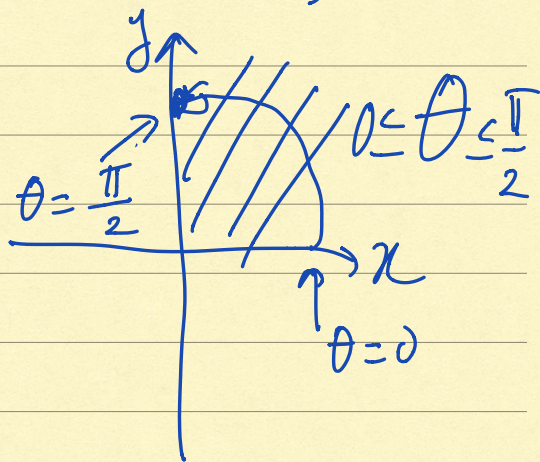 y
0 ≤ θ ≤ π/2
θ = π/2
x
θ = 0